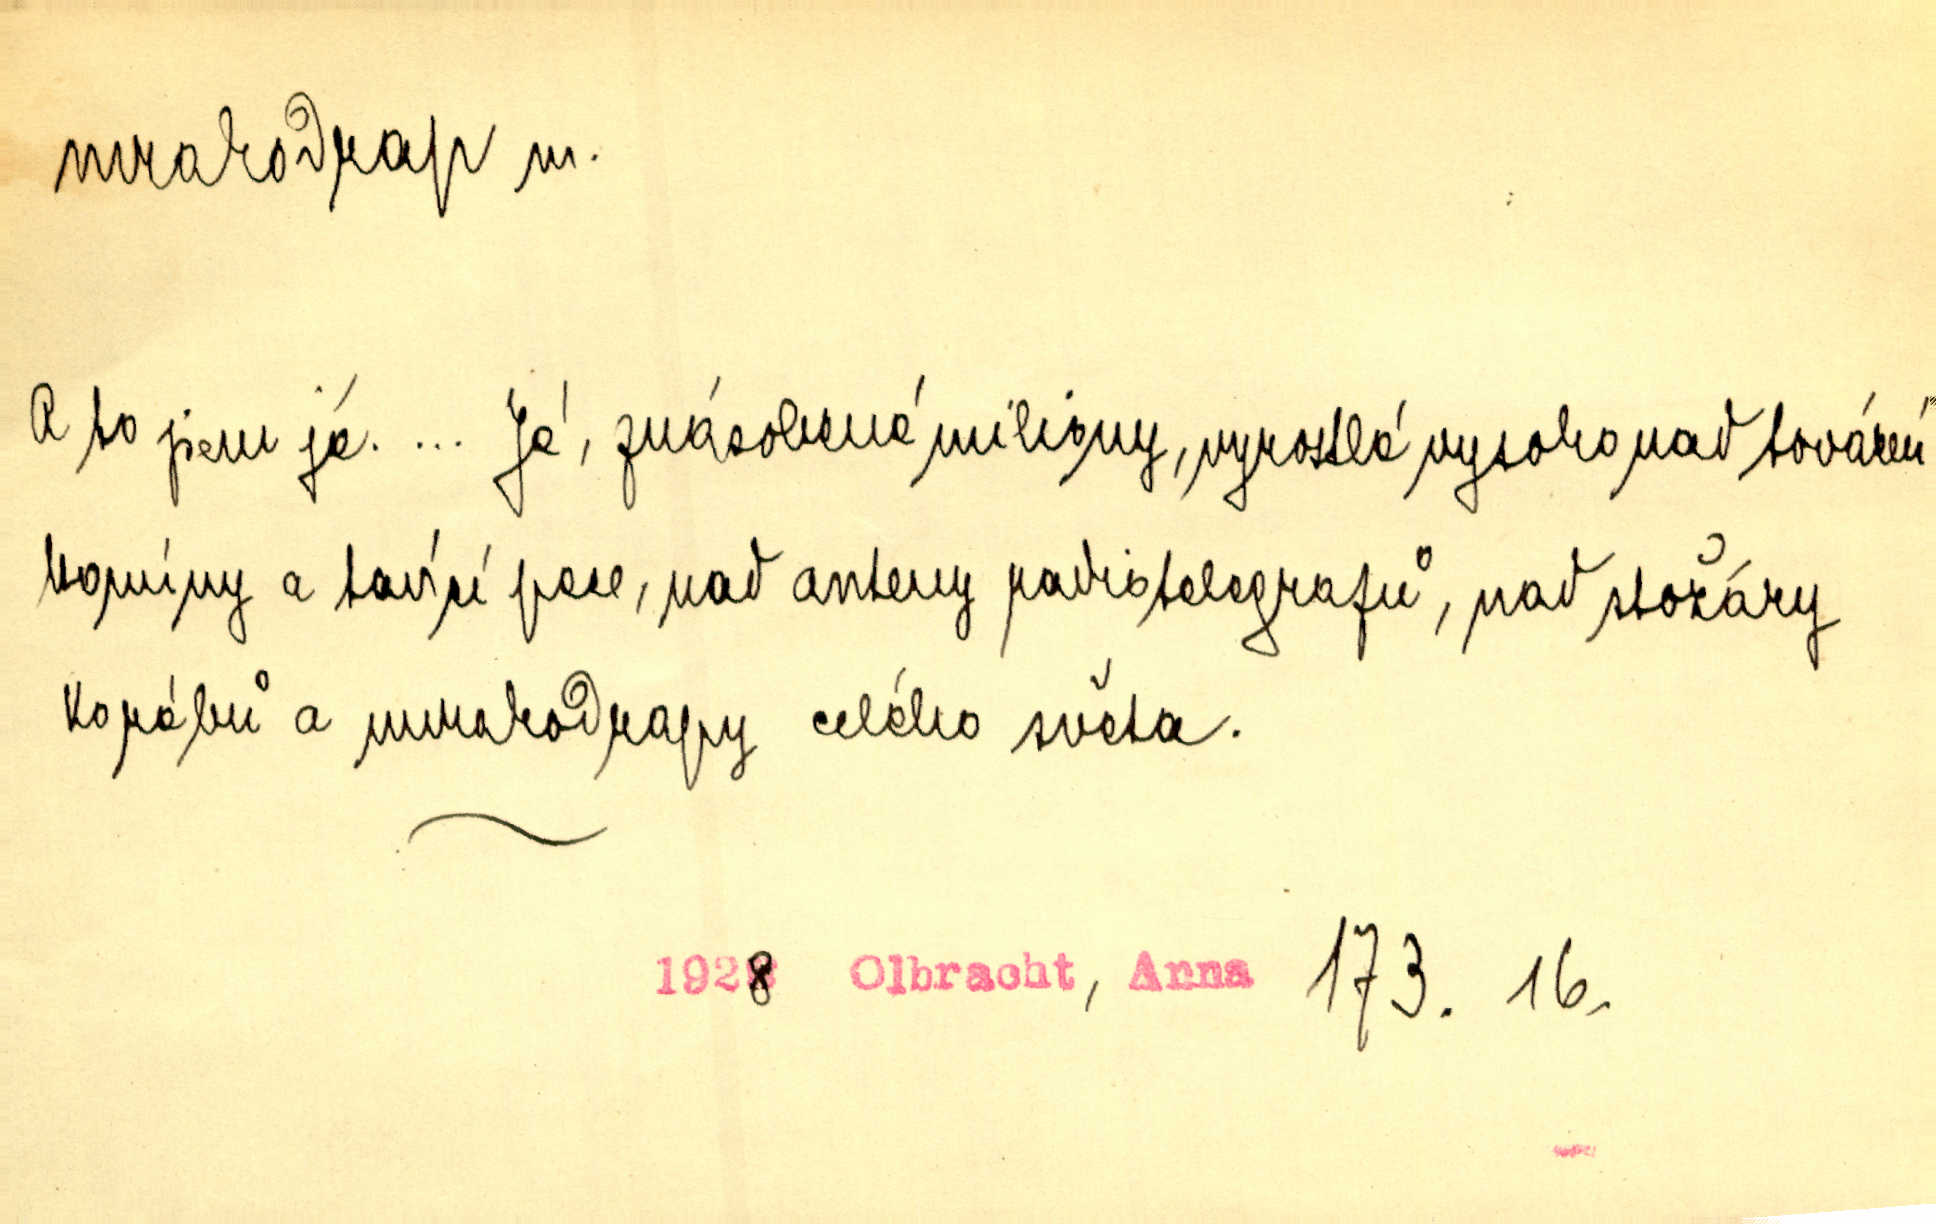 mrakodrap m.
A to jsem já. ... Já, znásobená miliony, vyrostlá vysoko nad tovární
komíny a tavící pece, nad anteny radiotelegrafů, nad stožáry
korábů a mrakodrapy celého světa.
1928 Olbracht, Anna 173. 16.